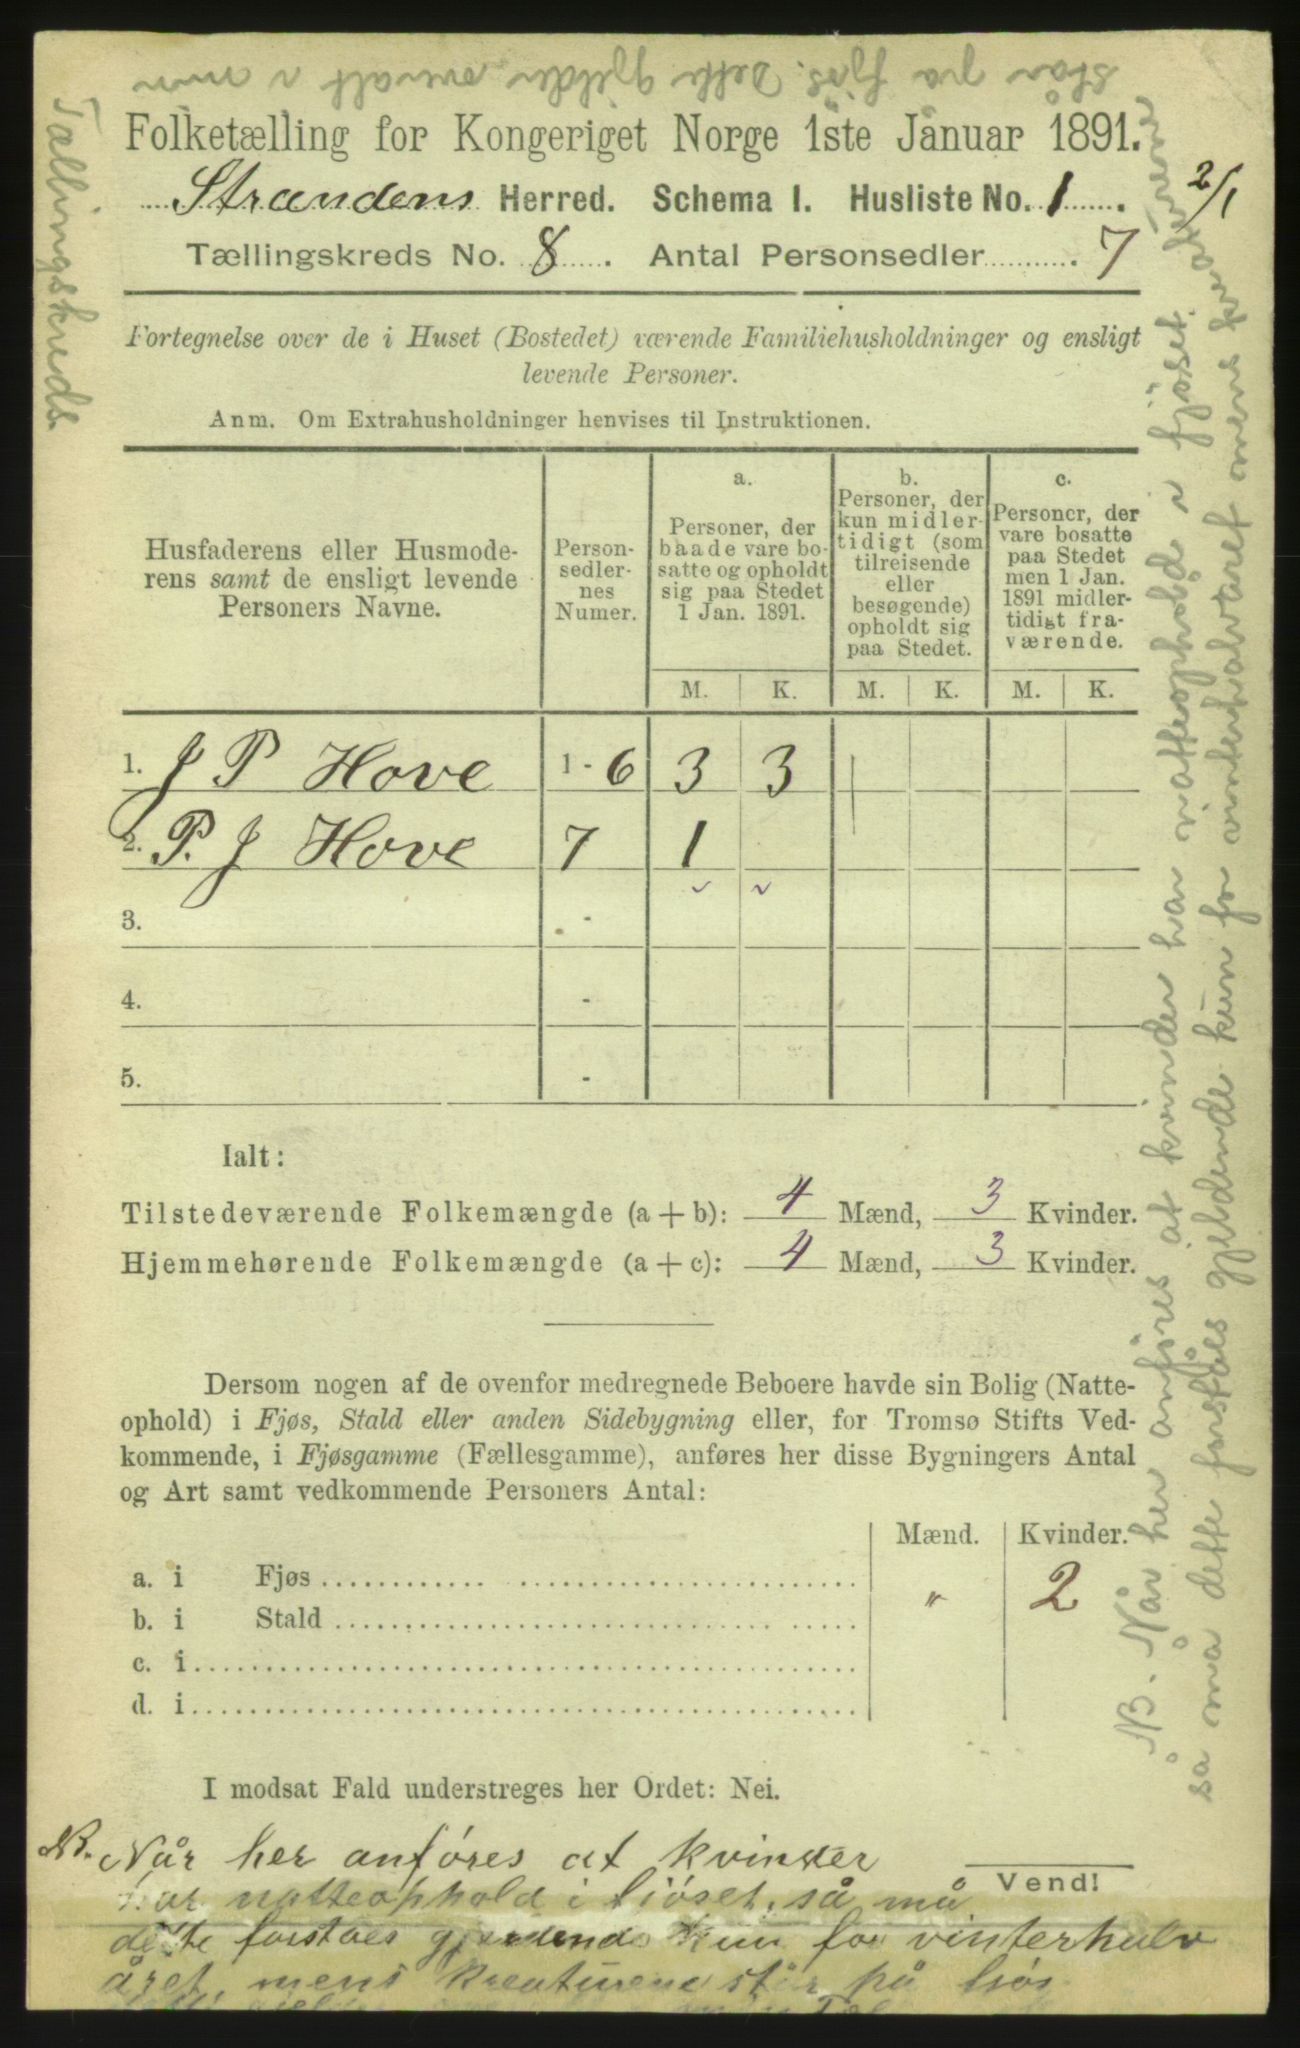 står på fjøs. Dette gjelder overalt i min
Tællingskreds.
Folketælling for Kongeriget Norge 1ste Januar 1891.
Strandens Herred. Schema I. Husliste No. 1.
2/1
Tællingskreds No. 8. Antal Personsedler. 7
Fortegnelse over de i Huset (Bostedet) værende Familiehusholdninger og ensligt
levende Personer.
Anm. Om Extrahusholdninger henvises til Instruktionen.
Husfaderens eller Husmode-
rens samt de ensligt levende
Personers Navne.
Person-
sedler-
nes
Numer.
a.
Personer, der
baade vare bo-
satte og opholdt
sig paa Stedet
1 Jan. 1891.
M. K.
b.
Personer, der
kun midler-
tidigt (som
tilreisende
eller
besøgende)
opholdt sig
paa Stedet.
M. K.
c.
Personer, der
vare bosatte
paa Stedet
men 1 Jan.
1891 midler-
tidigt fra-
værende.
M. K.
1. J P Hove 1 - 6 3 3
2. P. J Hove 7 1
3. -
4. -
5. -
Ialt:
Tilstedeværende Folkemængde (a + b): 4 Mænd, 3 Kvinder.
Hjemmehørende Folkemængde (a + c): 4 Mænd, 3 Kvinder.
Dersom nogen af de ovenfor medregnede Beboere havde sin Bolig (Natte-
ophold) i Fjøs, Stald eller anden Sidebygning eller, for Tromsø Stifts Ved-
kommende, i Fjøsgamme (Fællesgamme), anføres her disse Bygningers Antal
og Art samt vedkommende Personers Antal:
Mænd. Kvinder.
a. i Fjøs " 2
b. i Stald
c. i
d. i
I modsat Fald understreges her Ordet: Nei.
Vend!
NB. Når her anføres at kvinder
har natteophold i fjøset, så må
dette forståes gjeldende kun for vinterhalv
året, mens kreaturene står på fjøs
NB. Når her anføres at kvinder har natteophold i fjøset,
så må dette forståes gjeldende kun for vinterhalvåret mens kreaturene